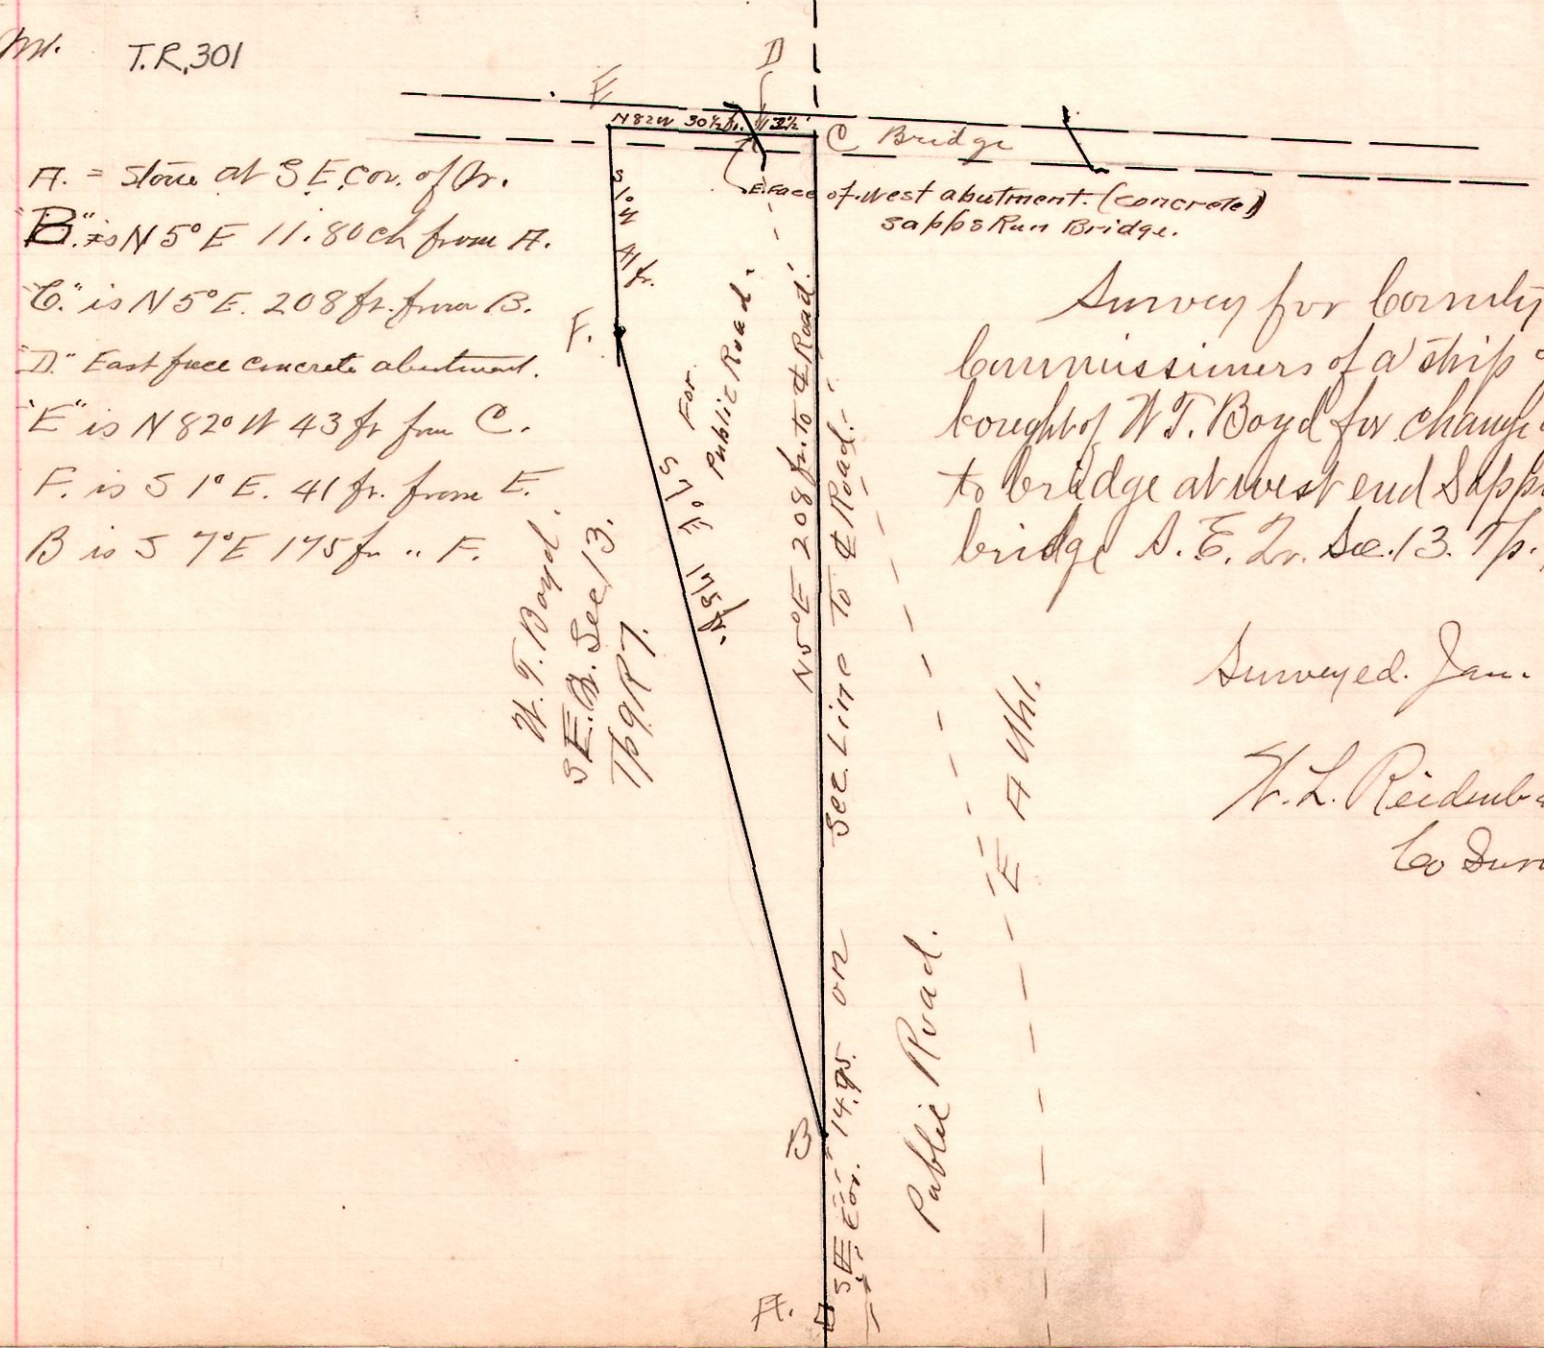 T.R. 301
A. = Stone at S E Cor. of Qr.
"B" is N 5° E 11.80 ch from A.
"C." is N 5° E. 208 ft. from B.
"D" East face concrete abutment.
"E" is N 82° W 43 ft from C.
F. is S 1° E. 41 ft. from E.
B is S 7° E 175 ft " F.
E
D
N 82 W 30½ ft.
12½'
C Bridge
E. Face of West abutment. (concrete)
Sapps Run Bridge.
S 1° E 41 ft.
F.
For
Public Road.
S 7° E 175 ft.
N 5° E 208 ft. to ₵ Road.
W. T. Boyd.
S E. Qr. Sec 13.
Tp 9 R 7.
S E Cor. 14.95 on Sec. Line To ₵ Road.
Public Road.
E A Uhl.
B
A.
Survey for County
Commissioners of a strip
bought of W T. Boyd for change
to bridge at west end Sapps
bridge S. E. Qr. Sec. 13. Tp.
Surveyed. Jan.
W. L.
Co Sur